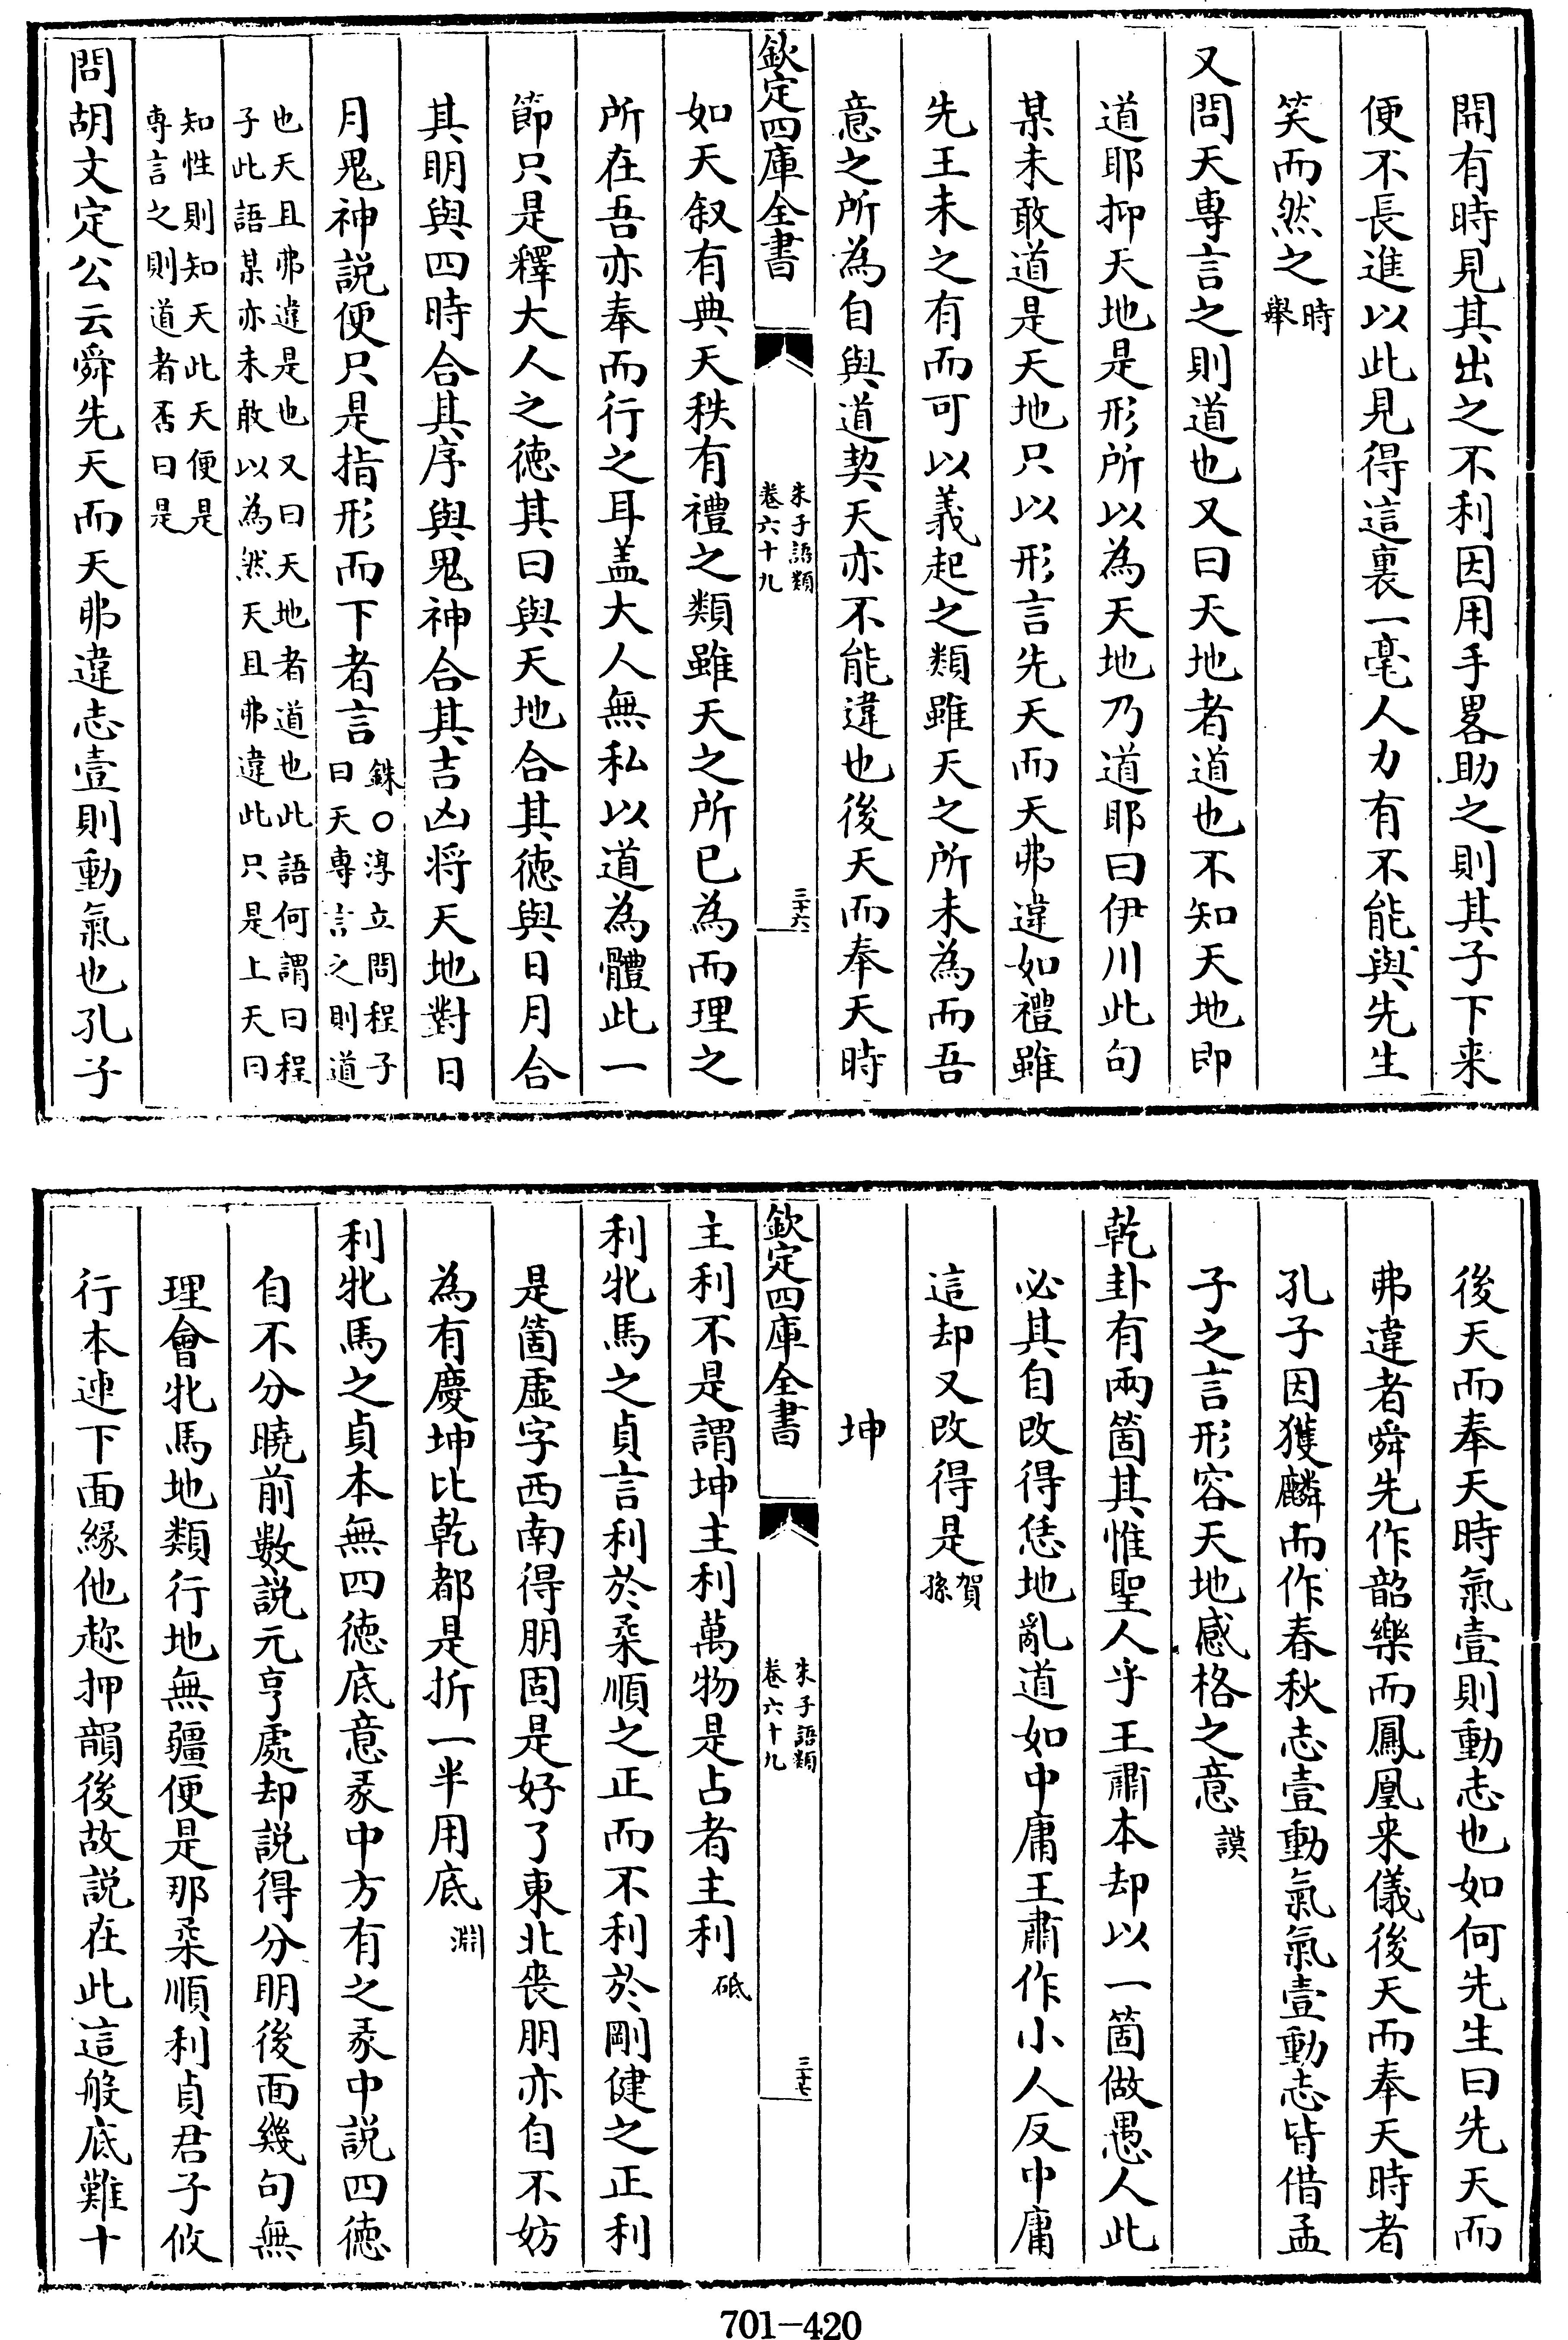 開有時見其出之不利因用手畧助之則其子下来
便不長進以此見得這裏一毫人力有不能與先生
笑而然之時舉
又問天專言之則道也又曰天地者道也不知天地即
道耶抑天地是形所以為天地乃道耶曰伊川此句
某未敢道是天地只以形言先天而天弗違如禮雖
先王未之有而可以義起之類雖天之所未為而吾
意之所為自與道契天亦不能違也後天而奉天時
欽定四庫全書
朱子語類
卷六十九
三十六
如天叙有典天秩有禮之類雖天之所已為而理之
所在吾亦奉而行之耳盖大人無私以道為體此一
節只是釋大人之德其曰與天地合其德與日月合
其明與四時合其序與鬼神合其吉凶将天地對日
月鬼神説便只是指形而下者言銖○淳立問程子
曰天專言之則道
也天且弗違是也又曰天地者道也此語何謂曰程
子此語某亦未敢以為然天且弗違此只是上天曰
知性則知天此天便是
專言之則道者否曰是
問胡文定公云舜先天而天弗違志壹則動氣也孔子
後天而奉天時氣壹則動志也如何先生曰先天而
弗違者舜先作韶樂而鳳凰来儀後天而奉天時者
孔子因獲麟而作春秋志壹動氣氣壹動志皆借孟
子之言形容天地感格之意謨
乾卦有兩箇其惟聖人乎王肅本却以一箇做愚人此
必其自改得恁地亂道如中庸王肅作小人反中庸
這却又改得是賀孫
坤
欽定四庫全書
朱子語類
卷六十九
三十七
主利不是謂坤主利萬物是占者主利砥
利牝馬之貞言利於柔順之正而不利於剛健之正利
是箇虛字西南得朋固是好了東北喪朋亦自不妨
為有慶坤比乾都是折一半用底淵
利牝馬之貞本無四德底意彖中方有之彖中説四德
自不分曉前數説元亨處却説得分明後面幾句無
理會牝馬地類行地無疆便是那柔順利貞君子攸
行本連下面緣他趂押韻後故説在此這般底難十
701-420